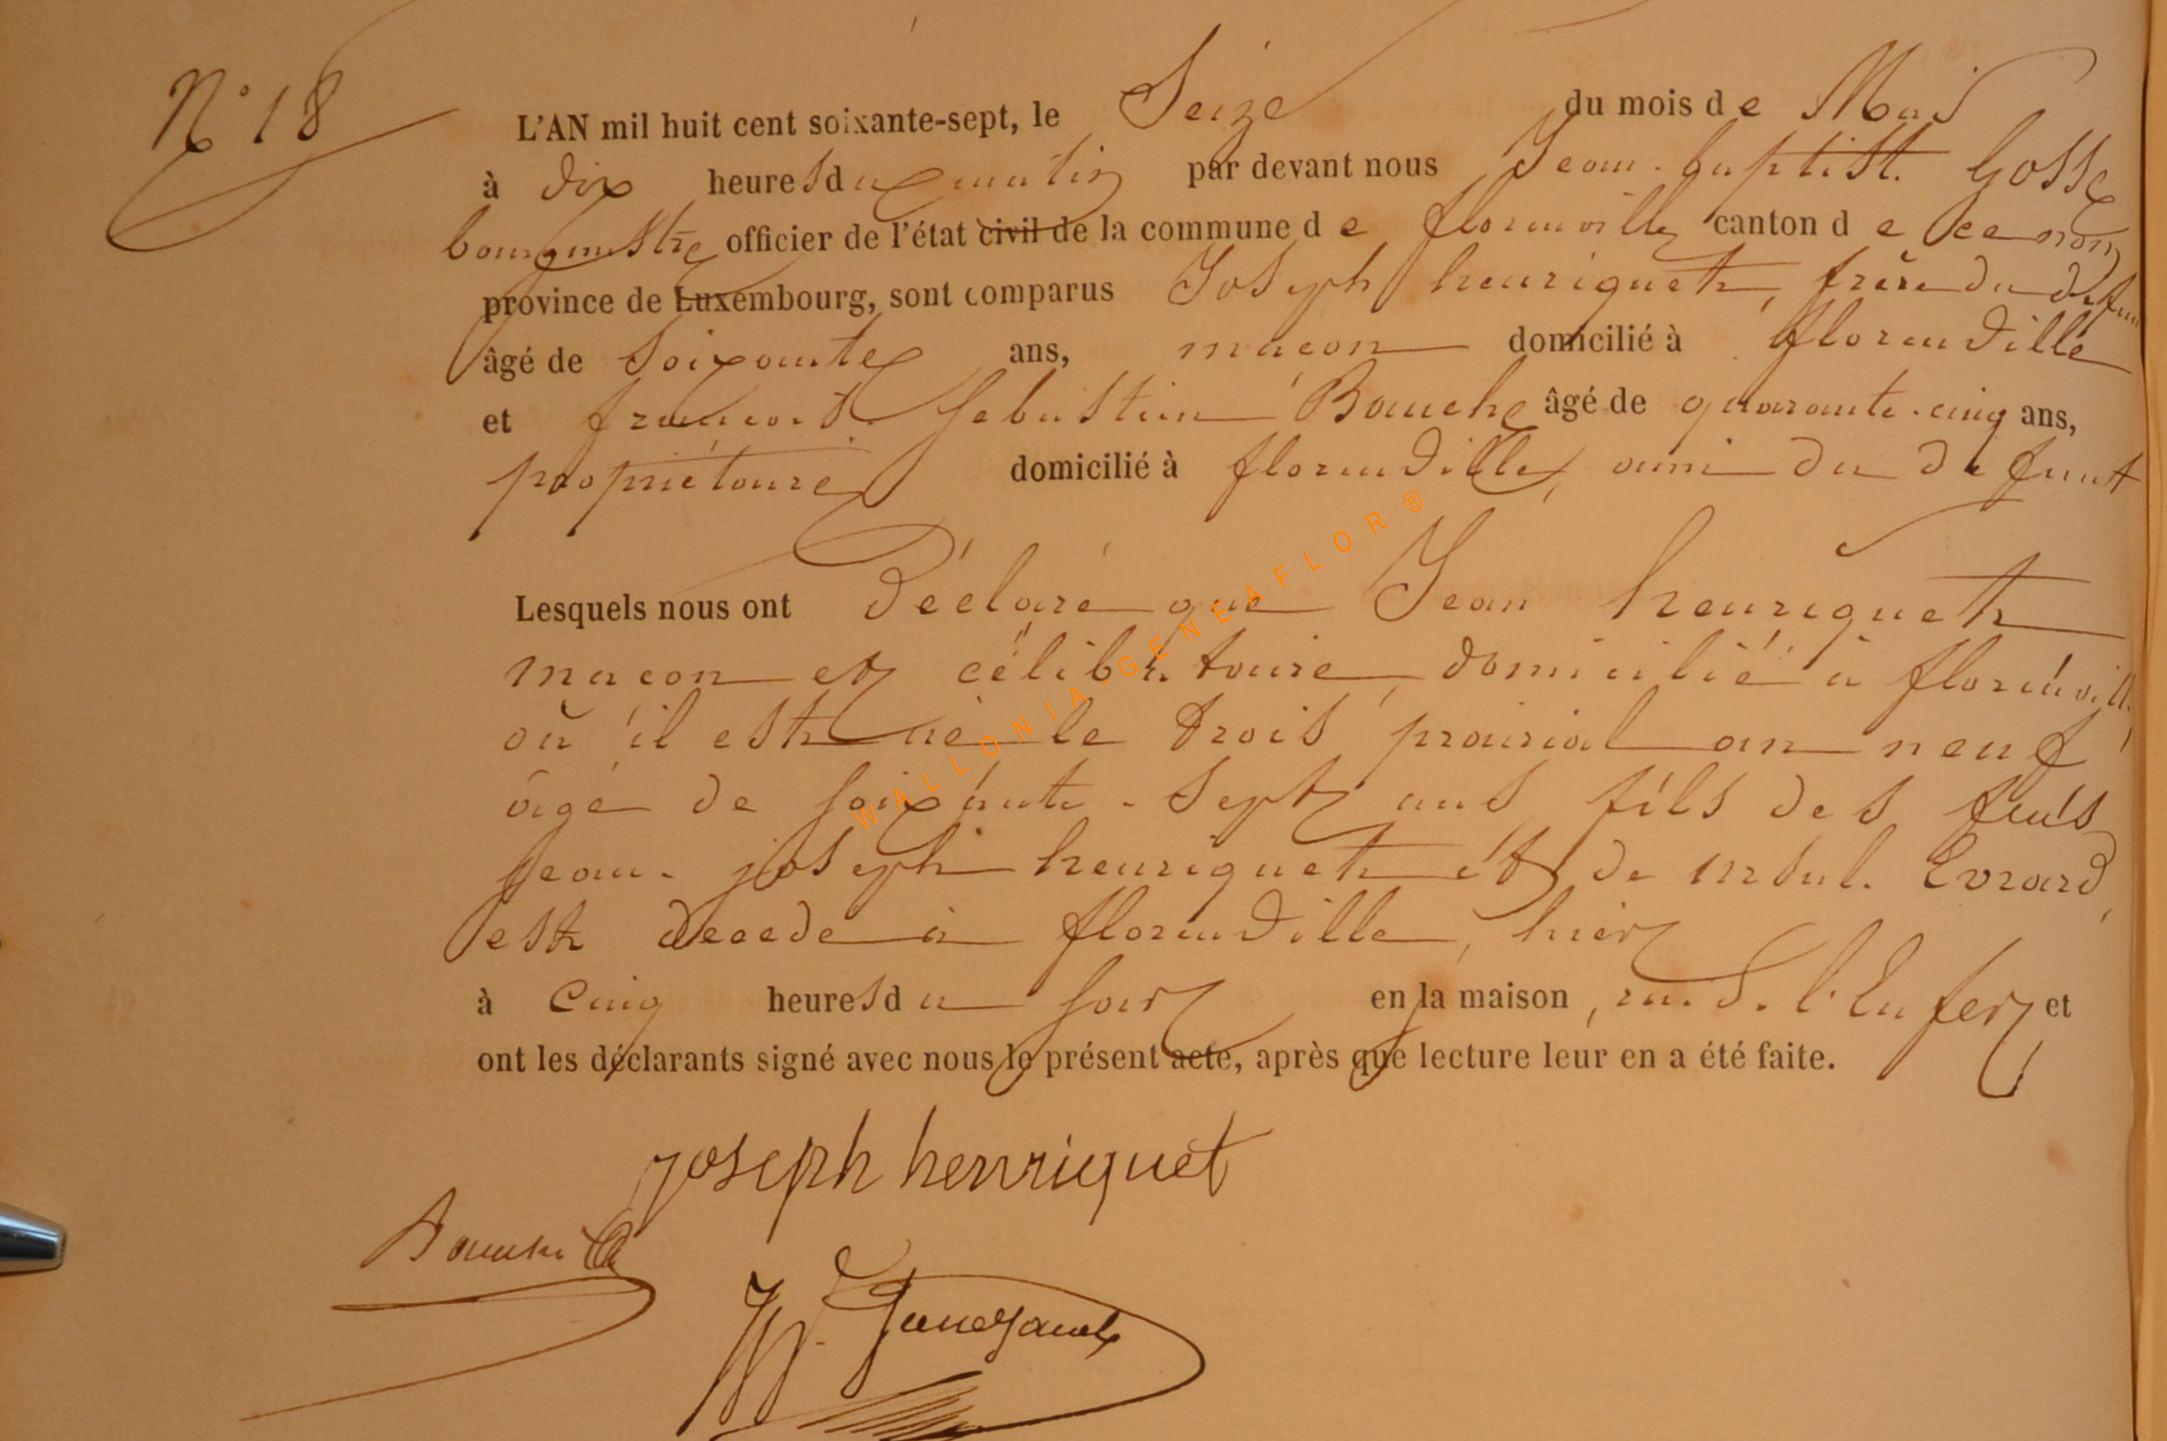 N° 18
L'AN mil huit cent soixante-sept, le Seize du mois de Mai
à dix heures du matin par devant nous Jean-baptist. Gosse
bourgmestre officier de l'état civil de la commune de florenville canton de
province de Luxembourg, sont comparus Joseph henriquet, frère du defunt
âgé de Soixante ans, maçon domicilié à florenville
et francois Sebastien Bauche âgé de quarante-cinq ans,
propriétaire domicilié à florenville, ami du defunt
Lesquels nous ont déclaré que Jean henriquet
maçon et célibataire, domicilié à florenville
où il est né le trois prairial an neuf,
âgé de soixante-sept ans fils des feus
jean-joseph henriquet et de Evrard,
est decede à florenville, hier
à cinq heures du soir en la maison, rue d. l'Enfer et
ont les déclarants signé avec nous le présent acte, après que lecture leur en a été faite.
joseph henriquet
WALLONIA-GENEAFLOR®